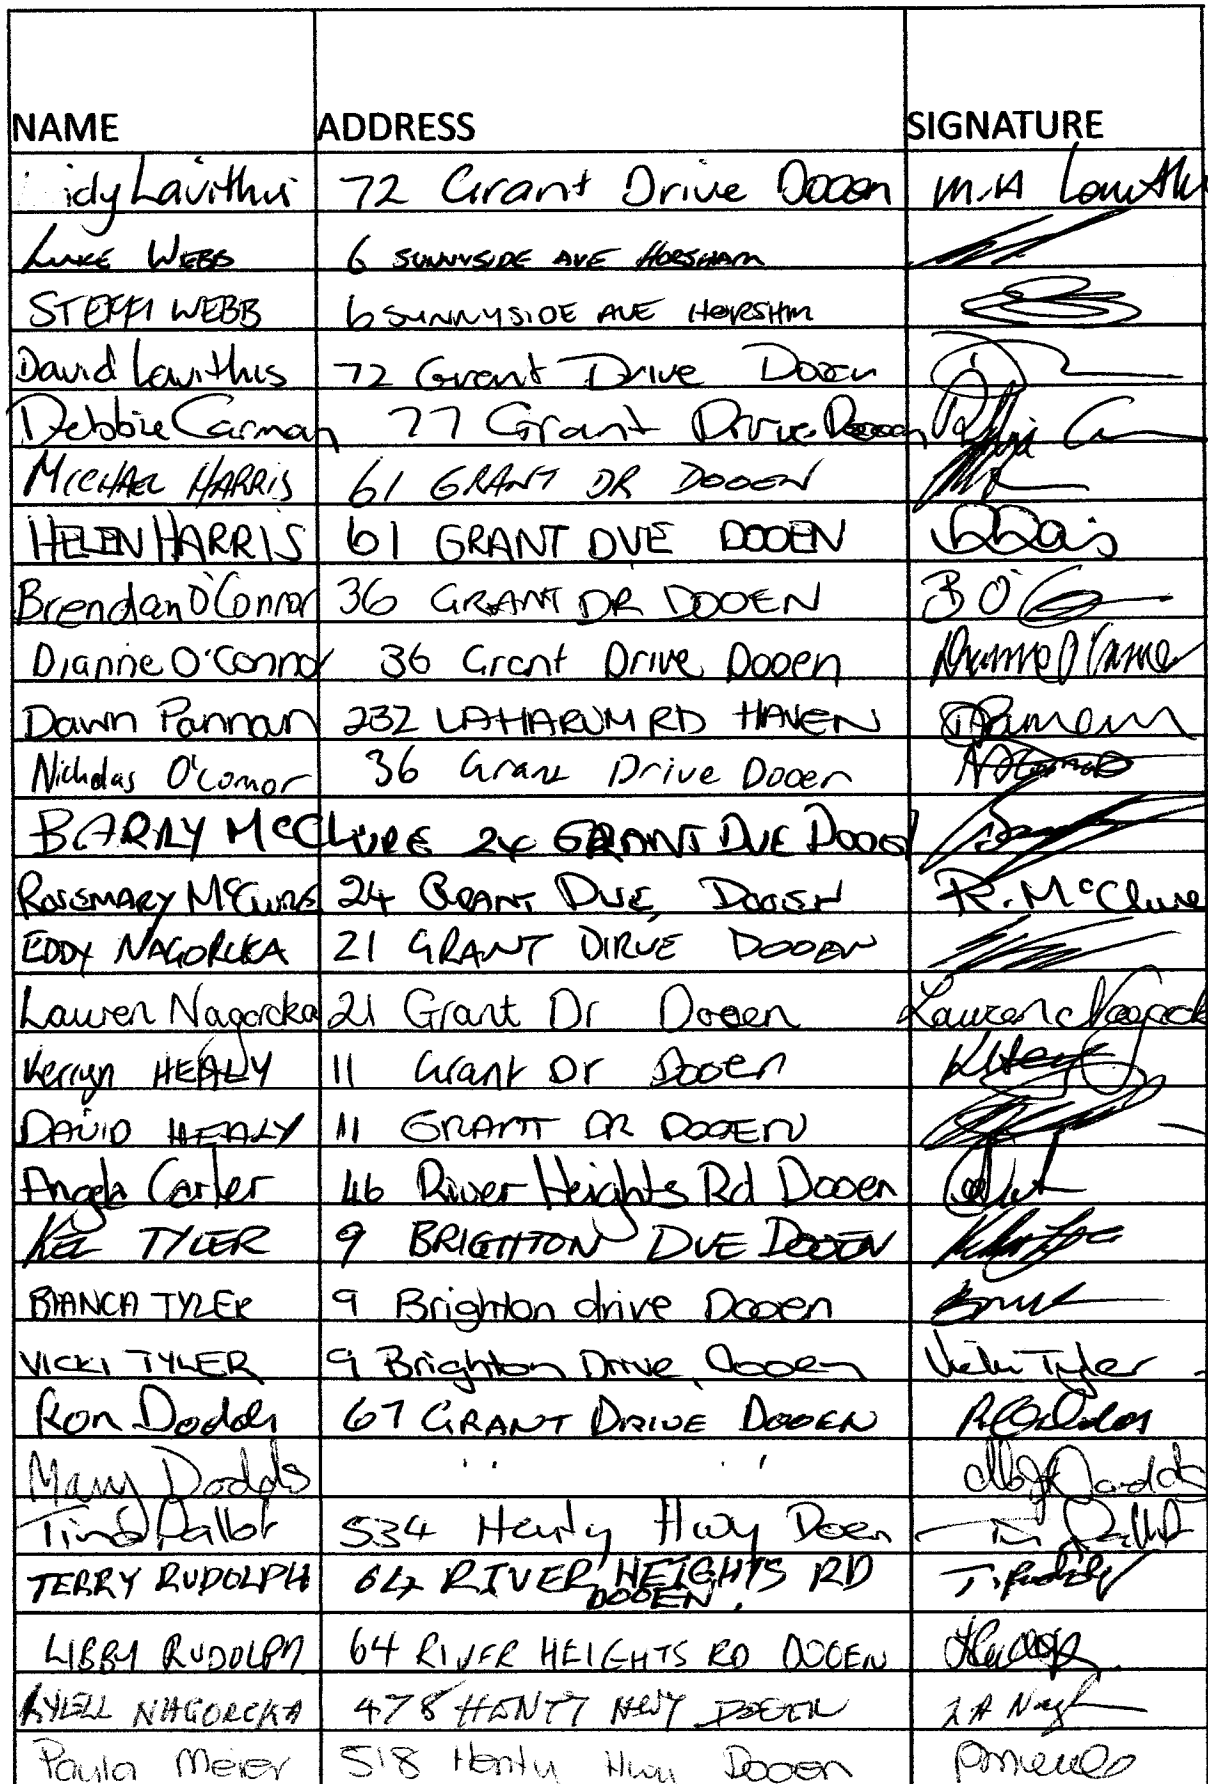 NAME ADDRESS SIGNATURE
idy Lavithis 72 Grant Drive Dooen M.A
LUKE WEBB 6 SUNNYSIDE AVE HORSHAM
STEFFI WEBB 6 SUNNYSIDE AVE HORSHM
David Lavithis 72 Grant Drive Dooen
Debbie Carman 77 Grant Drive Dooen
MICHAEL HARRIS 61 GRANT DR DOOEN
HELEN HARRIS 61 GRANT DVE DOOEN
Brendan O'Connor 36 GRANT DR DOOEN B O'
Dianne O'Connor 36 Grant Drive Dooen Dianne O'Connor
Dawn Pannan 232 LAHARUM RD HAVEN
Nicholas O'Connor 36 Grant Drive Dooen
BARRY McCLURE 24 GRANT DVE DOOEN
ROSEMARY McCLURE 24 GRANT DVE, DOOEN R. McClure
EDDY NAGORCKA 21 GRANT DIRVE DOOEN
Lauren Nagorcka 21 Grant Dr Dooen Lauren Nagorcka
Kerryn HEALY 11 Grant Dr Dooen
DAVID HEALY 11 GRANT DR DOOEN
Angela Carter 46 River Heights Rd Dooen
KEL TYLER 9 BRIGHTON DVE DOOEN
BIANCA TYLER 9 Brighton drive Dooen
VICKI TYLER 9 Brighton Drive, Dooen Vicki Tyler
Ron Dodds 67 GRANT DRIVE DOOEN
Mary Dodds " "
Tina Pallot 534 Henty Hwy Dooen
TERRY RUDOLPH 64 RIVER HEIGHTS RD
DOOEN. T. Rudolph
LIBBY RUDOLPH 64 RIVER HEIGHTS RD DOOEN
LYELL NAGORCKA 478 HENTY HWY DOOEN
Paula Meier 518 Henty Hwy Dooen